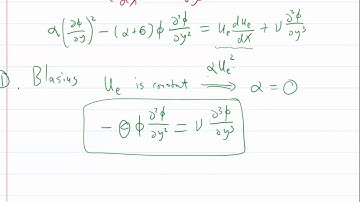 α(∂φ/∂y)² - (α+6) φ ∂²φ/∂y² = u_e du_e/dx + ν ∂³φ/∂y³
①. Blasius u_e is constant ⟹ α = 0
αu_e²
- θ φ ∂²φ/∂y² = ν ∂³φ/∂y³